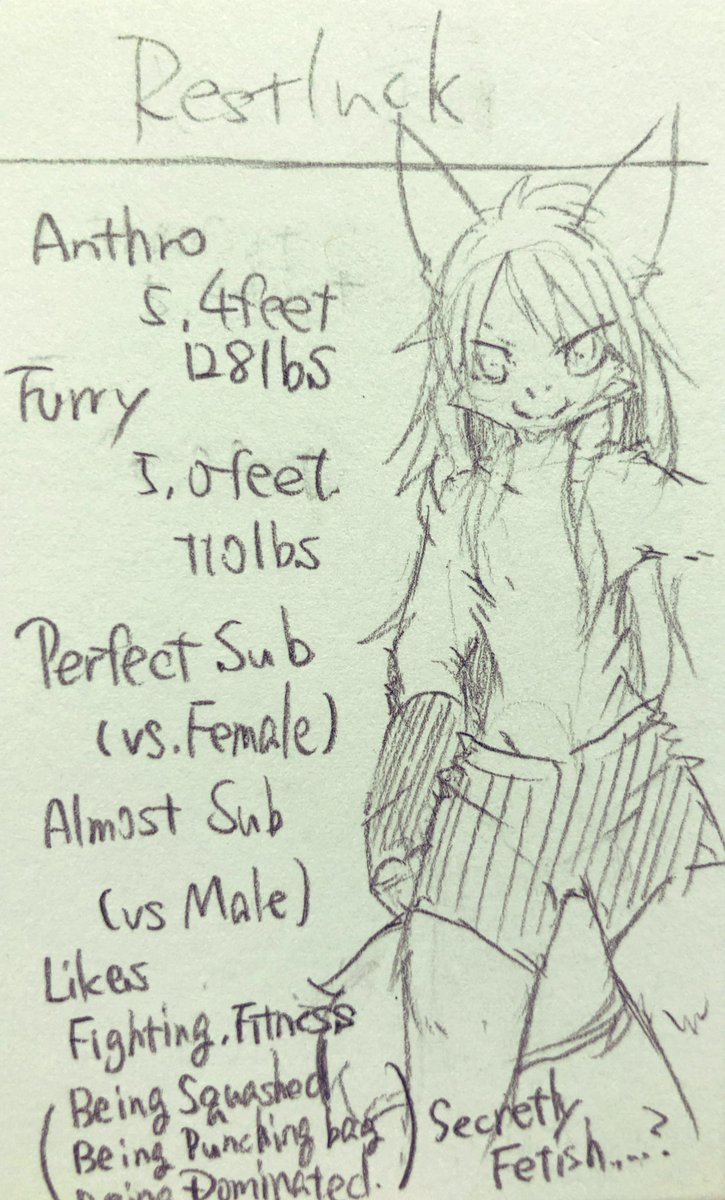 Restluck
Anthro
5,4feet
128lbs
Furry
5,0feet
110lbs
Perfect Sub
(vs.Female)
Almost Sub
(vs Male)
Likes
Fighting,Fitness
(Being Squashed
Being Punching bag
Being Dominated.)
Secretly
Fetish....?